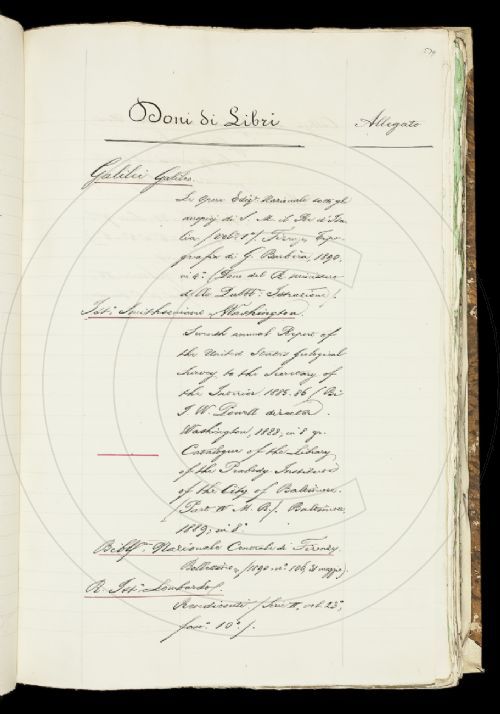 Doni di Libri
Allegato
Galilei Galileo
Le Opere Ediz. Nazionale sotto gli
auspicj di S. M. il Re d'Ita-
lia (Vol. 1°) Firenze, Tipo-
grafia di G. Barbèra, 1890.
in 4° (Dono del R. ministero
della Pubb. Istruzione).
Ist. Smithsoniano, Washington.
Seventh annual Report of
the United States geological
Survey to the Secretary of
the Interior 1885-86 (Bi
J. W. Powell director.
Washington, 1888, in 8 gr.
Catalogue of the Library
of the Peabody Institute
of the City of Baltimore.
(Part IV M. R). Baltimore,
1889, in 8°
Bibl. Nazionale Centrale di Firenze
Bollettino, (1890 n. 106, 31 maggio).
R. Ist. Lombardo.
Rendiconti (Serie II, vol. 23°,
fasc. 10°).